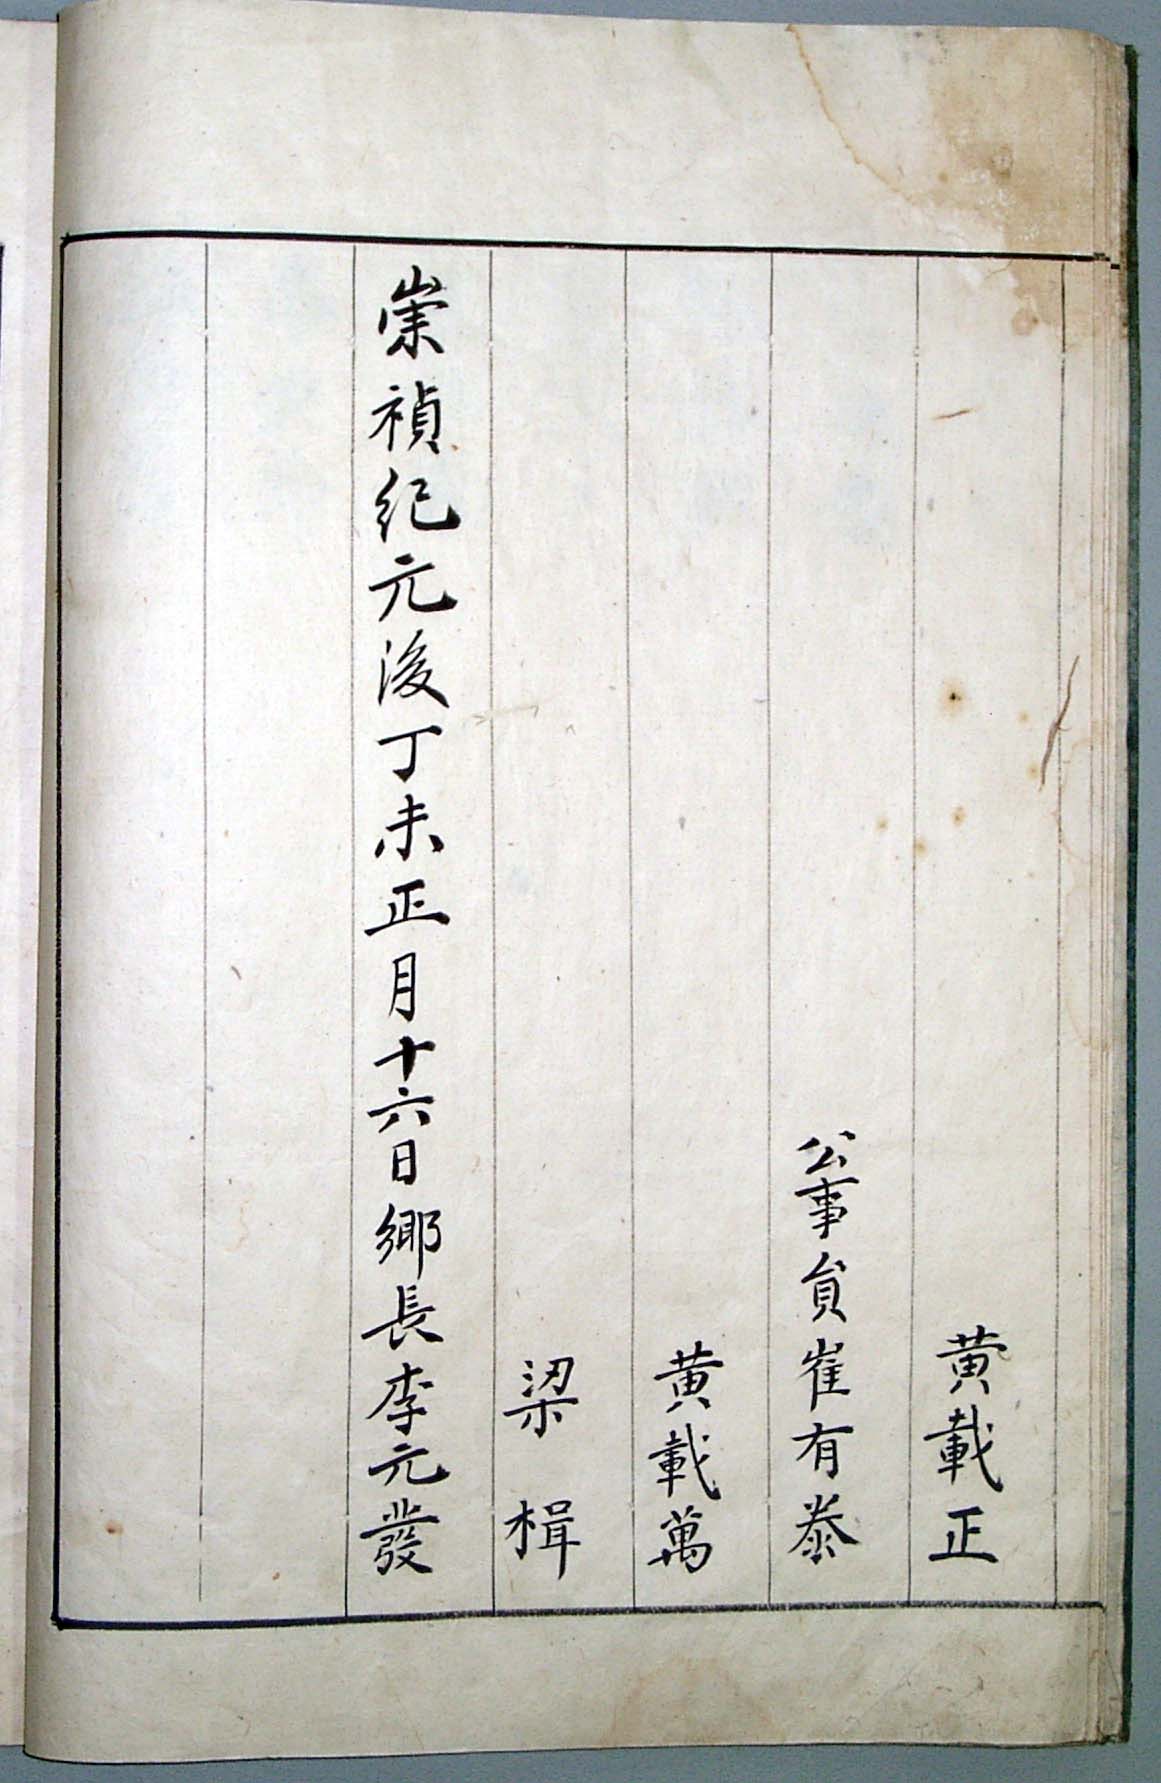 黄載正
公事貟崔有泰
黄載萬
梁楫
崇禎紀元後丁未正月十六日鄉長李元發